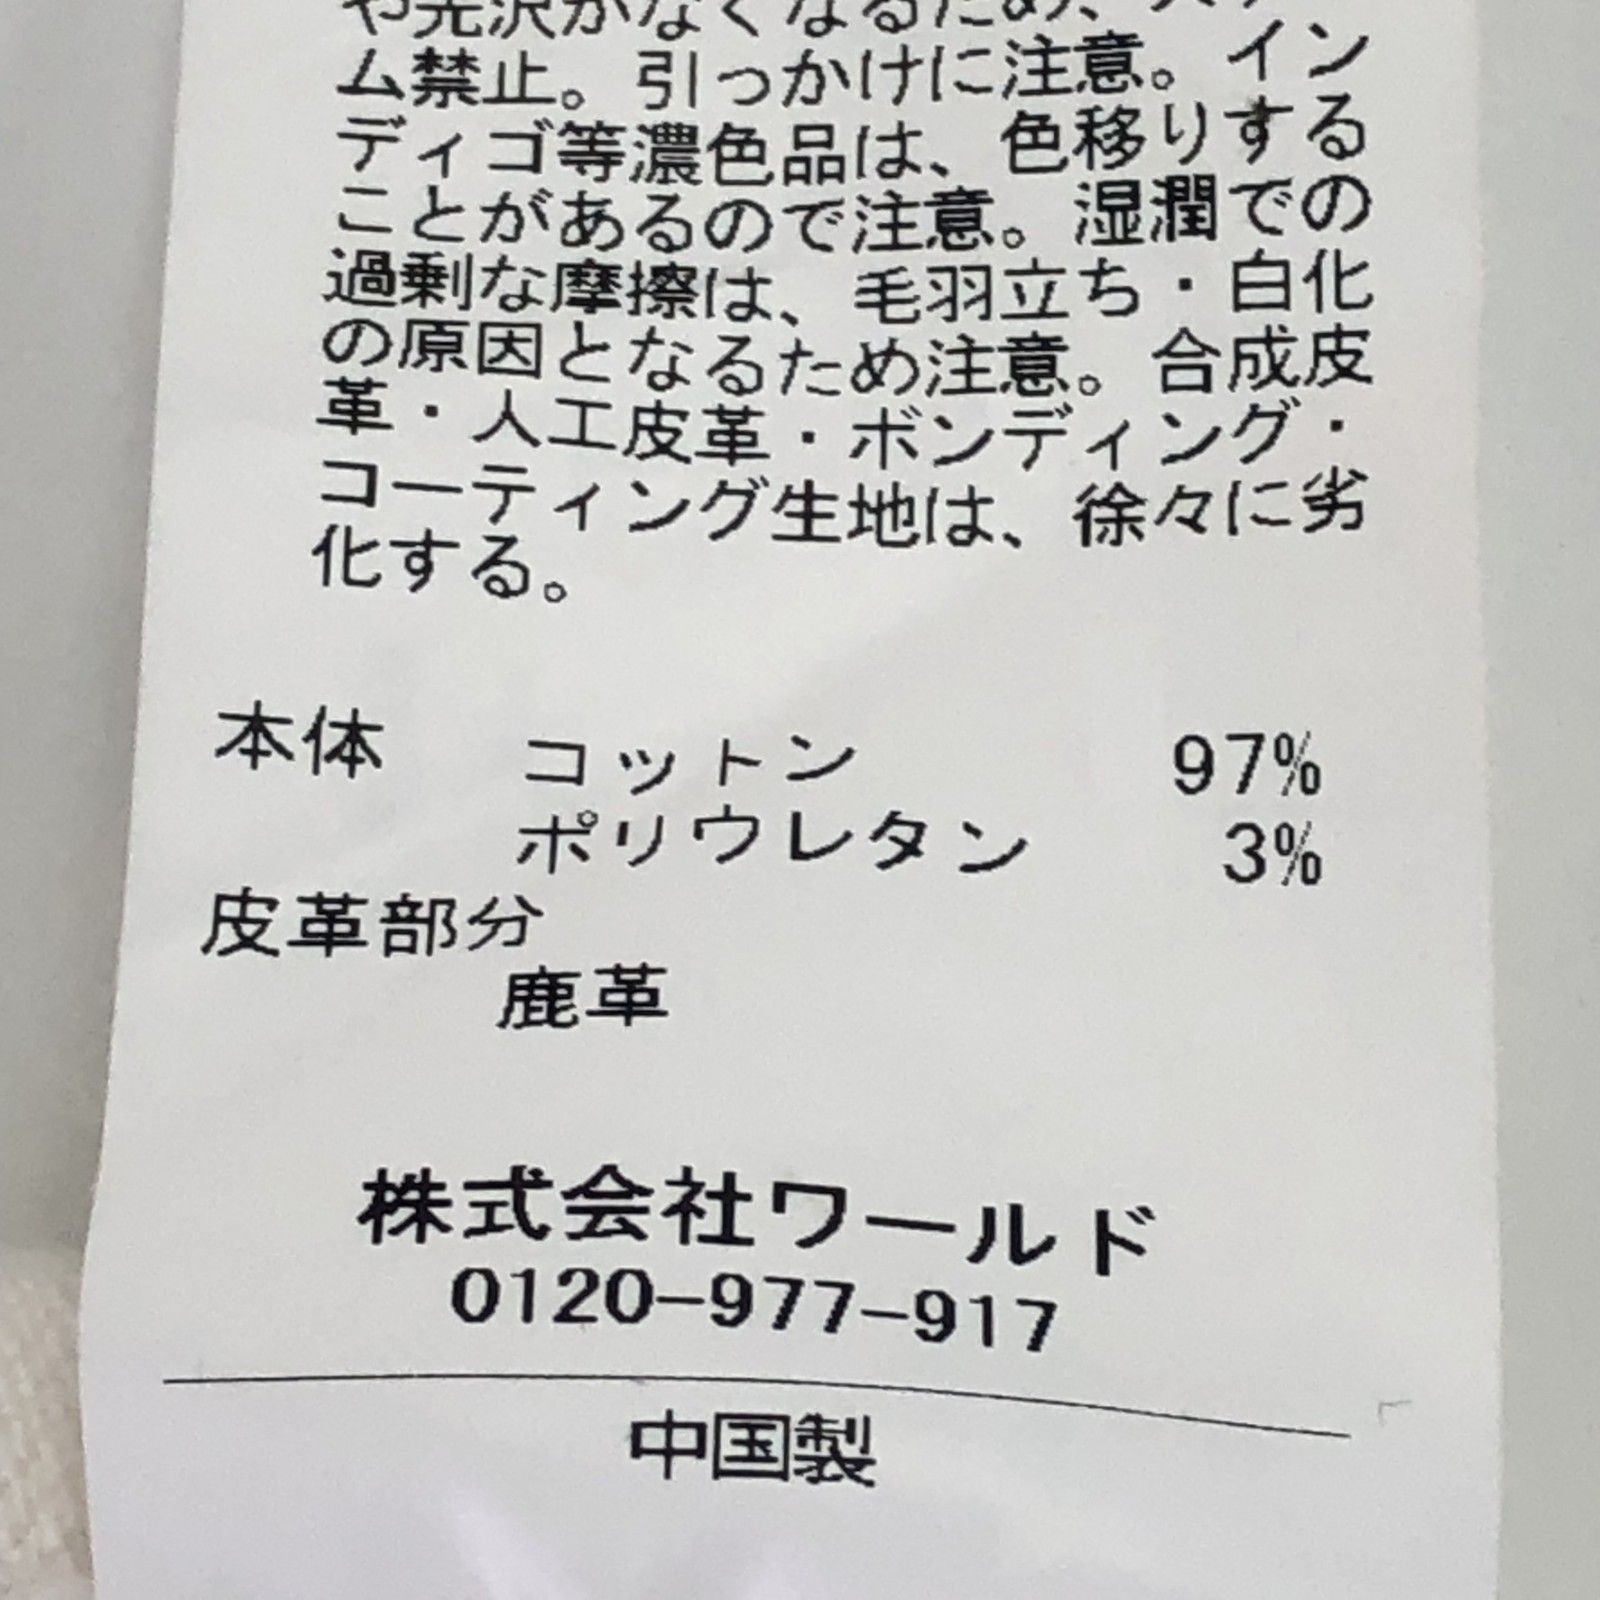 や光沢がなくなるため、スチー
ム禁止。引っかけに注意。イン
ディゴ等濃色品は、色移りする
ことがあるので注意。湿潤での
過剰な摩擦は、毛羽立ち・白化
の原因となるため注意。合成皮
革・人工皮革・ボンディング・
コーティング生地は、徐々に劣
化する。
本体 コットン 97%
ポリウレタン 3%
皮革部分
鹿革
株式会社ワールド
0120-977-917
中国製